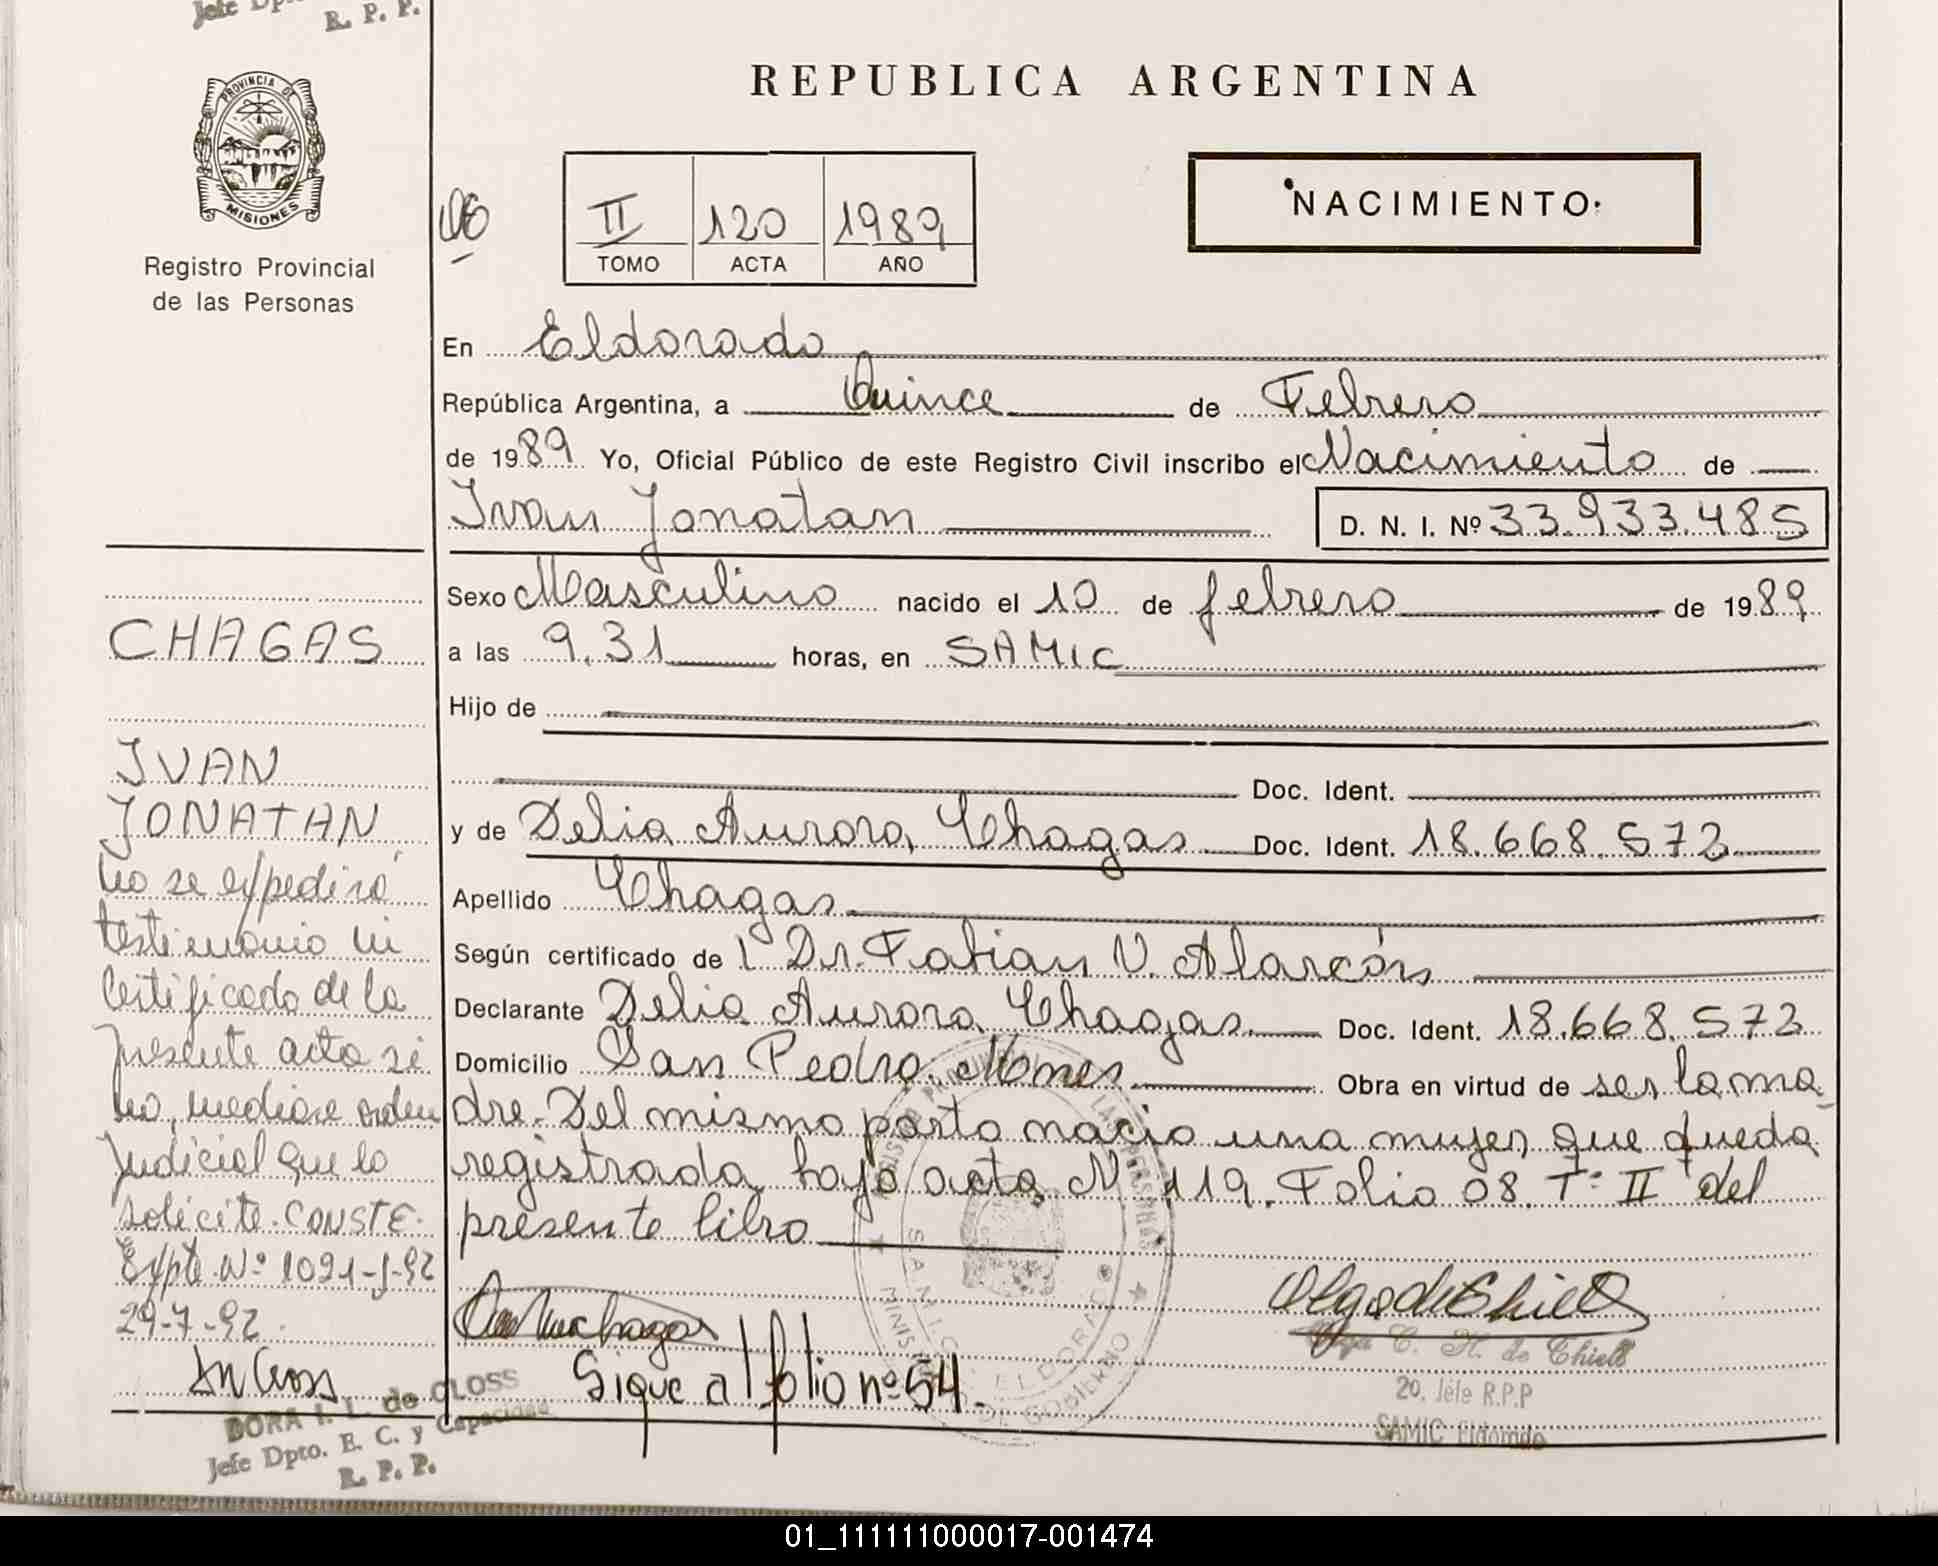 Jefe Dp
R. P. P.
PROVINCIA DE
MISIONES
Registro Provincial
de las Personas
REPUBLICA ARGENTINA
II 120 1989
TOMO ACTA AÑO
NACIMIENTO
En Eldorado
República Argentina, a Quince de Febrero
de 1989 Yo, Oficial Público de este Registro Civil inscribo el Nacimiento de
Ivan Jonatan D. N. I. Nº 33.933.485
Sexo Masculino nacido el 10 de febrero de 1989
a las 9.31 horas, en SAMIC
Hijo de
Doc. Ident.
y de Delia Aurora Chagas Doc. Ident. 18.668.572
Apellido Chagas
Según certificado de l Dr. Fabian V. Alarcón
Declarante Delia Aurora Chagas Doc. Ident. 18.668.572
Domicilio San Pedro. Mnes Obra en virtud de ser la ma
dre. Del mismo parto nacio una mujer que queda
registrada bajo acta Nº 119. Folio 08. Tº II del
presente libro
Sigue al folio nº 54.
Olga C. H. de Thiele
20. Jefe R.P.P
SAMIC Eldorado
CHAGAS
IVAN
JONATAN
No se expedirá
testimonio ni
Certificado de la
presente acta si
no, mediare orden
Judicial que lo
solicite. CONSTE.
Expte Nº 1091-J-92
29-7-92.
DORA I. L. de GLOSS
Jefe Dpto. E. C. y Capacidad
R. P. P.
01_111111000017-001474